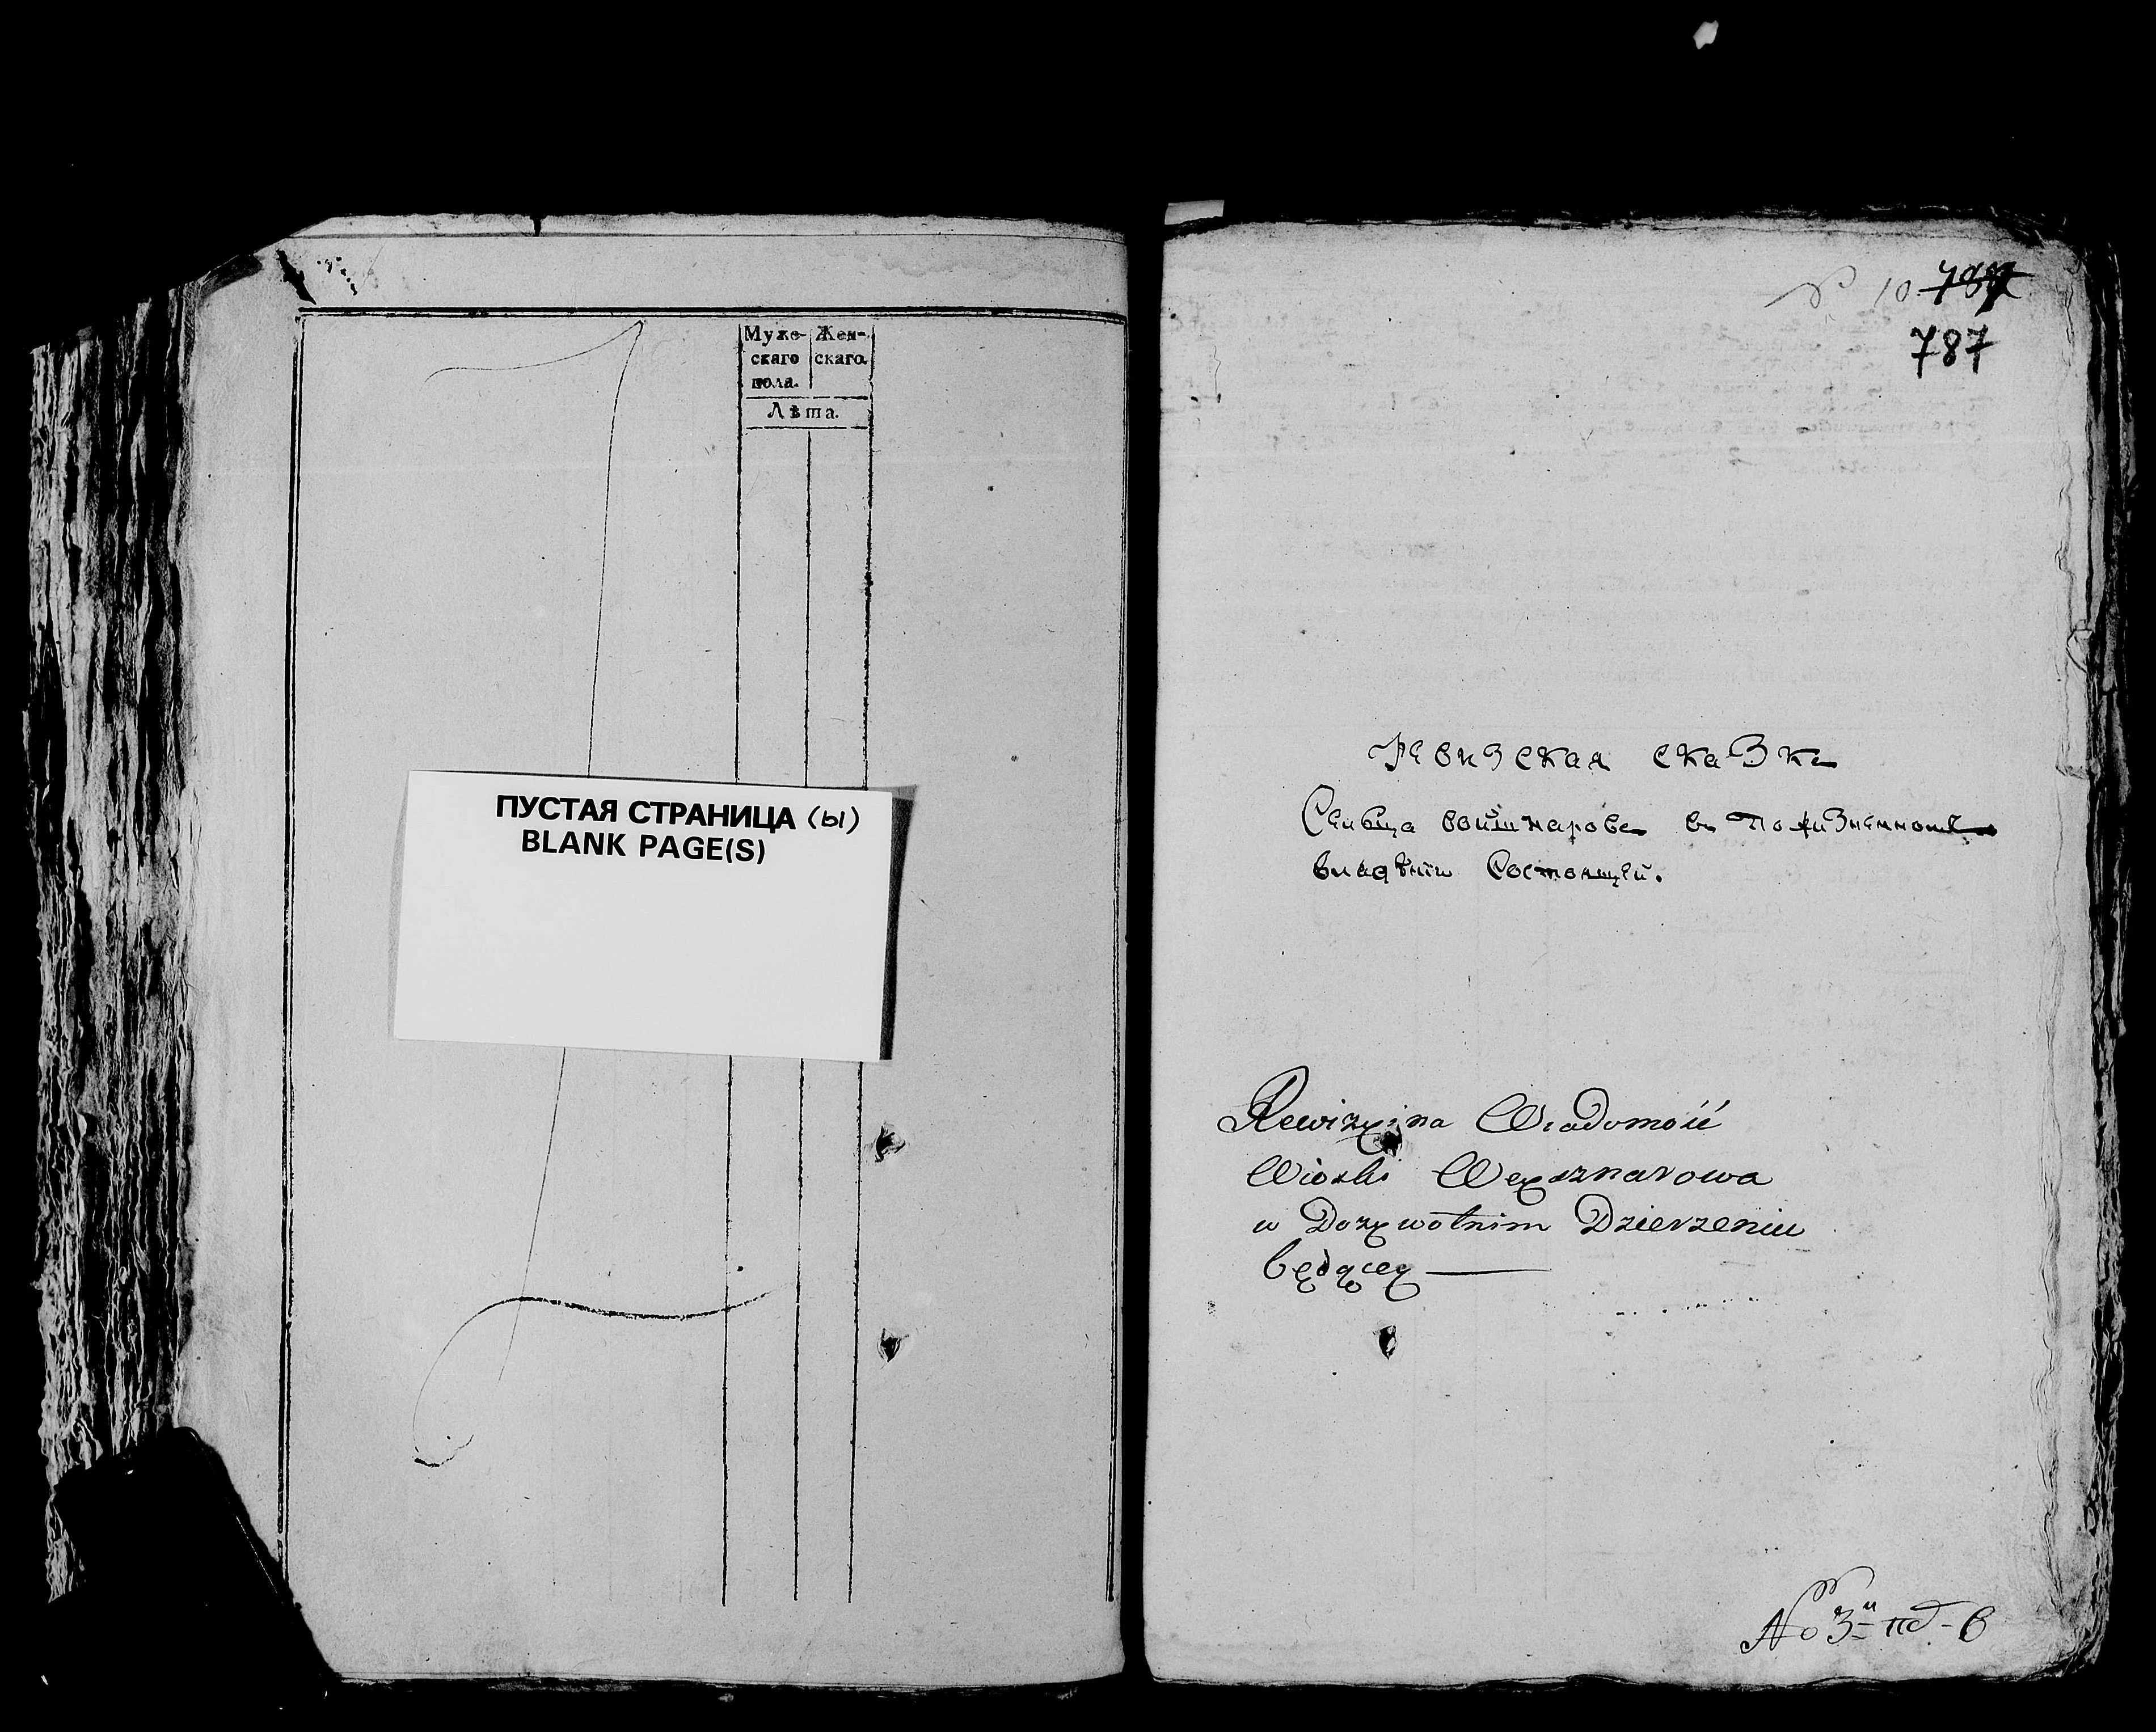 Муже- Жен-
скаго скаго.
пола.
Лѣта.
ПУСТАЯ СТРАНИЦА (ы)
BLANK PAGE(S)
10 787
787
Ревизская сказка
Сельца войшнарова въ пожизненномъ
владѣнїи Состоящей.
Rewizyina Wiadomość
Wioski Weysznarowa
w Dozywotnim Dzierzeniu
będącey
No 3